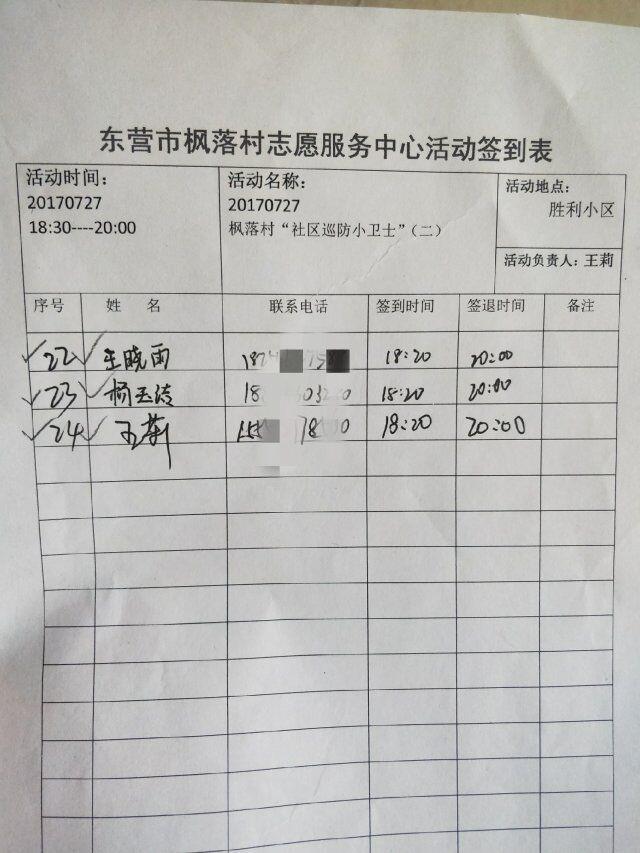 东营市枫落村志愿服务中心活动签到表
活动时间：
20170727
18:30----20:00
活动名称：
20170727
枫落村“社区巡防小卫士”（二）
活动地点：
胜利小区
活动负责人：王莉
序号 姓 名 联系电话 签到时间 签退时间 备注
22 王晓雨 18:20 20:00
23 杨玉洁 18:20 20:00
24 王莉 18:20 20:00